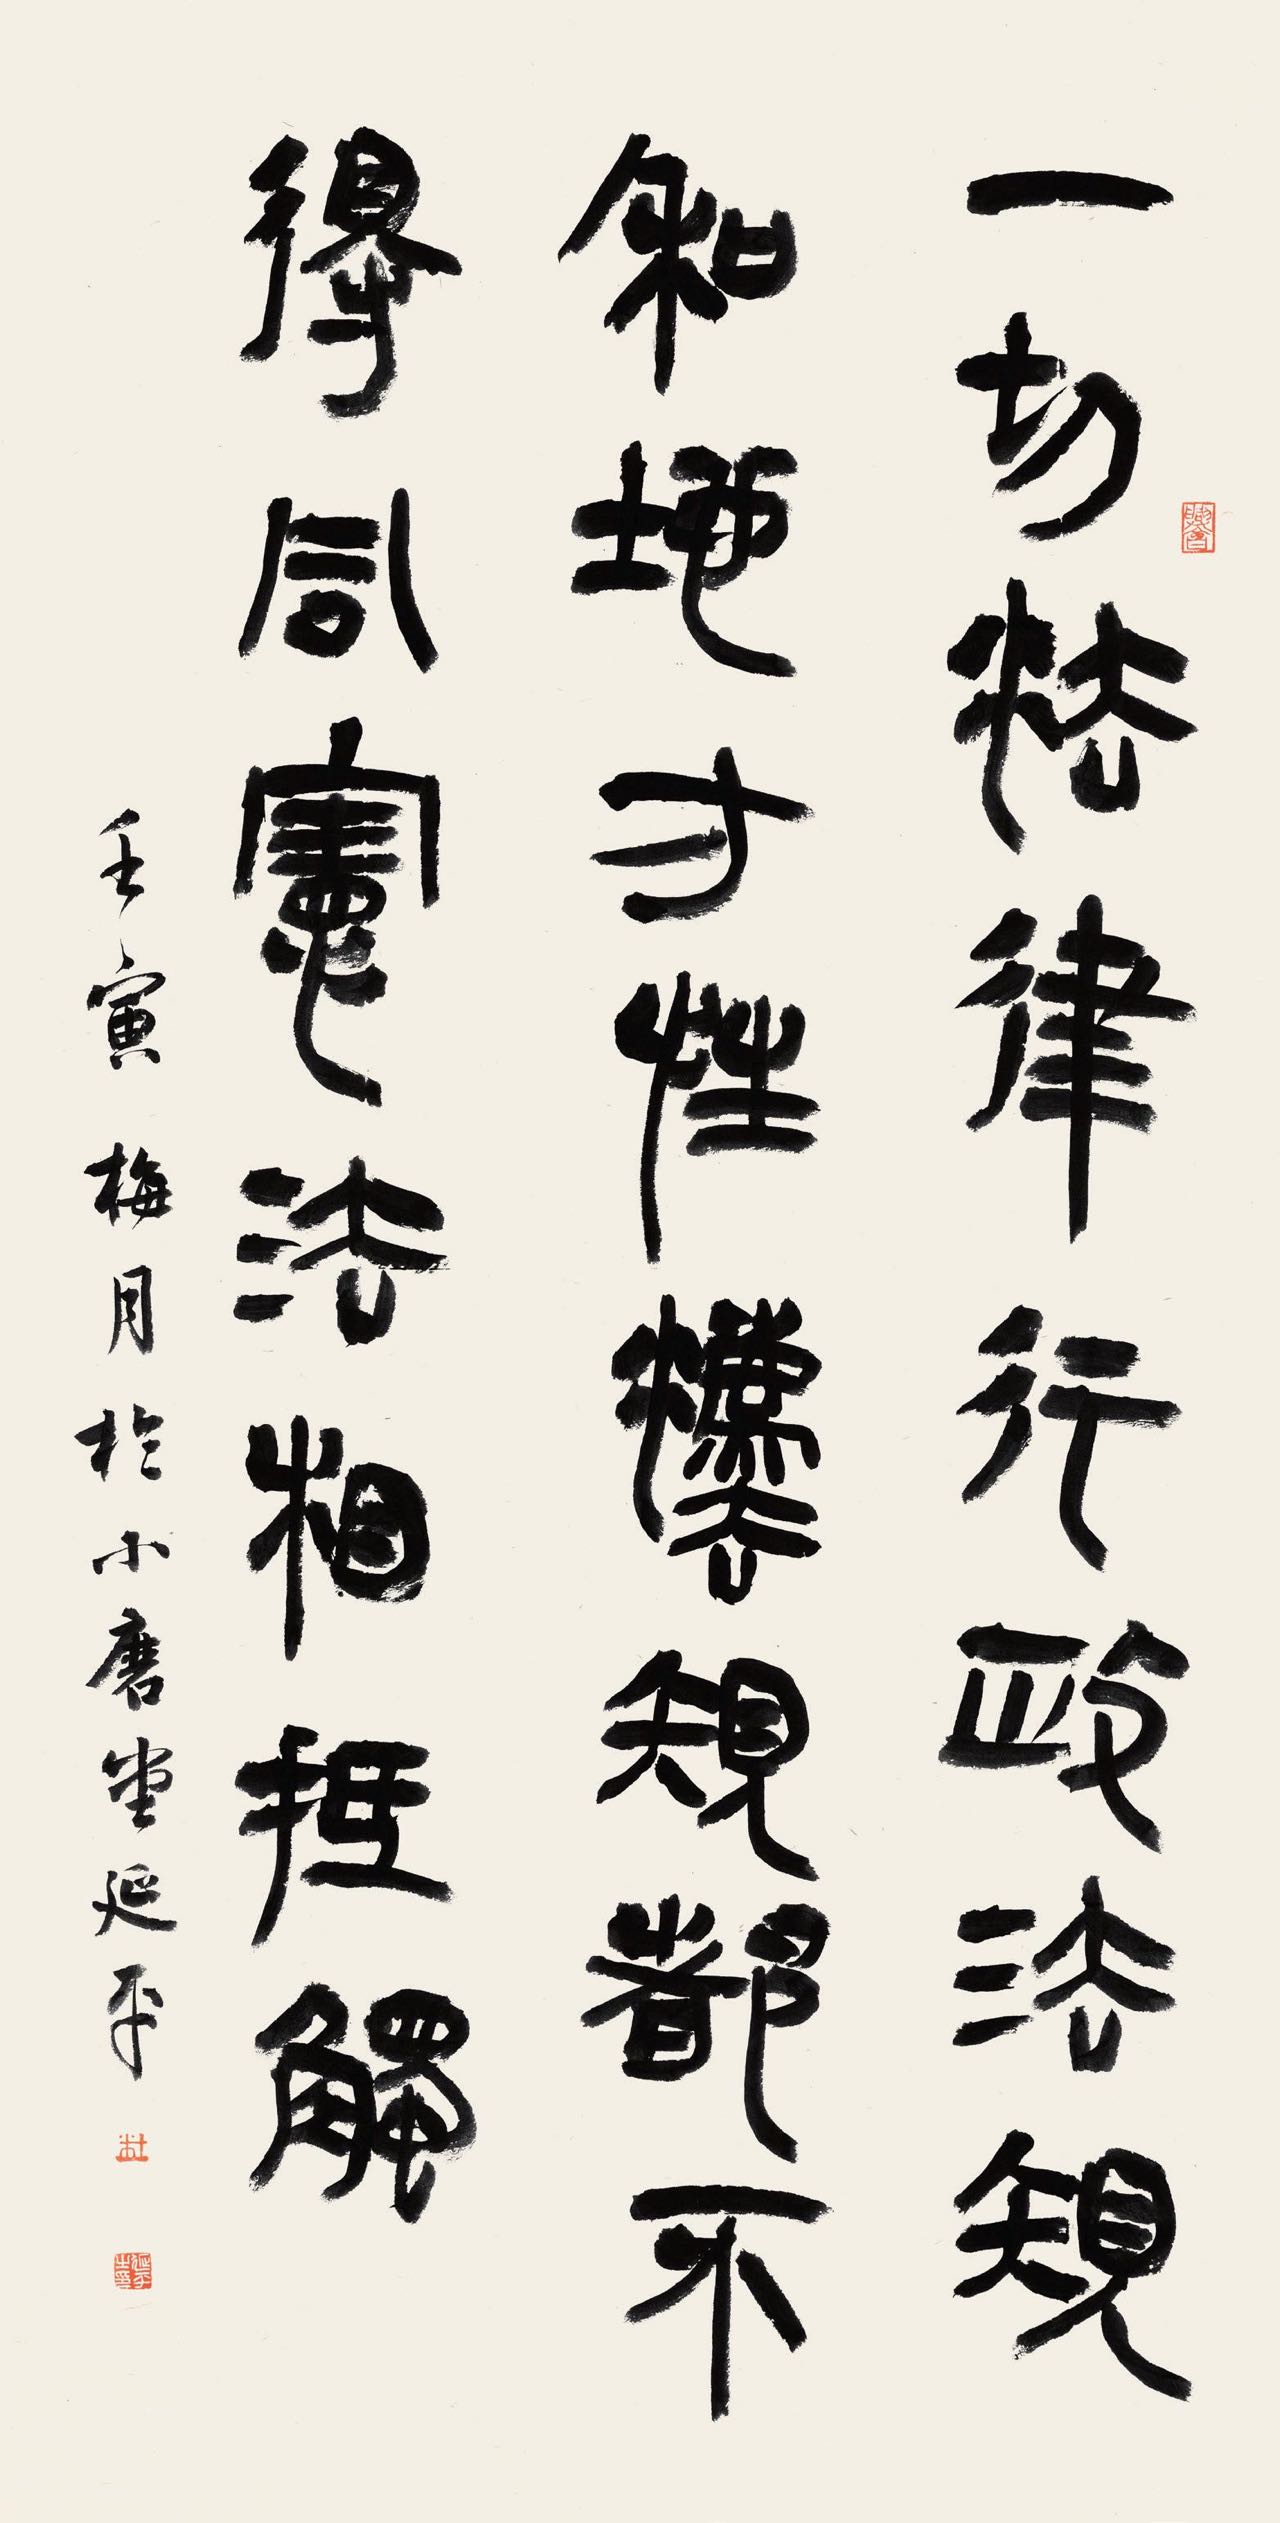 一切法律行政法規
和地方性法規都不
得同憲法相抵觸
壬寅梅月於小磨堂延平
杜